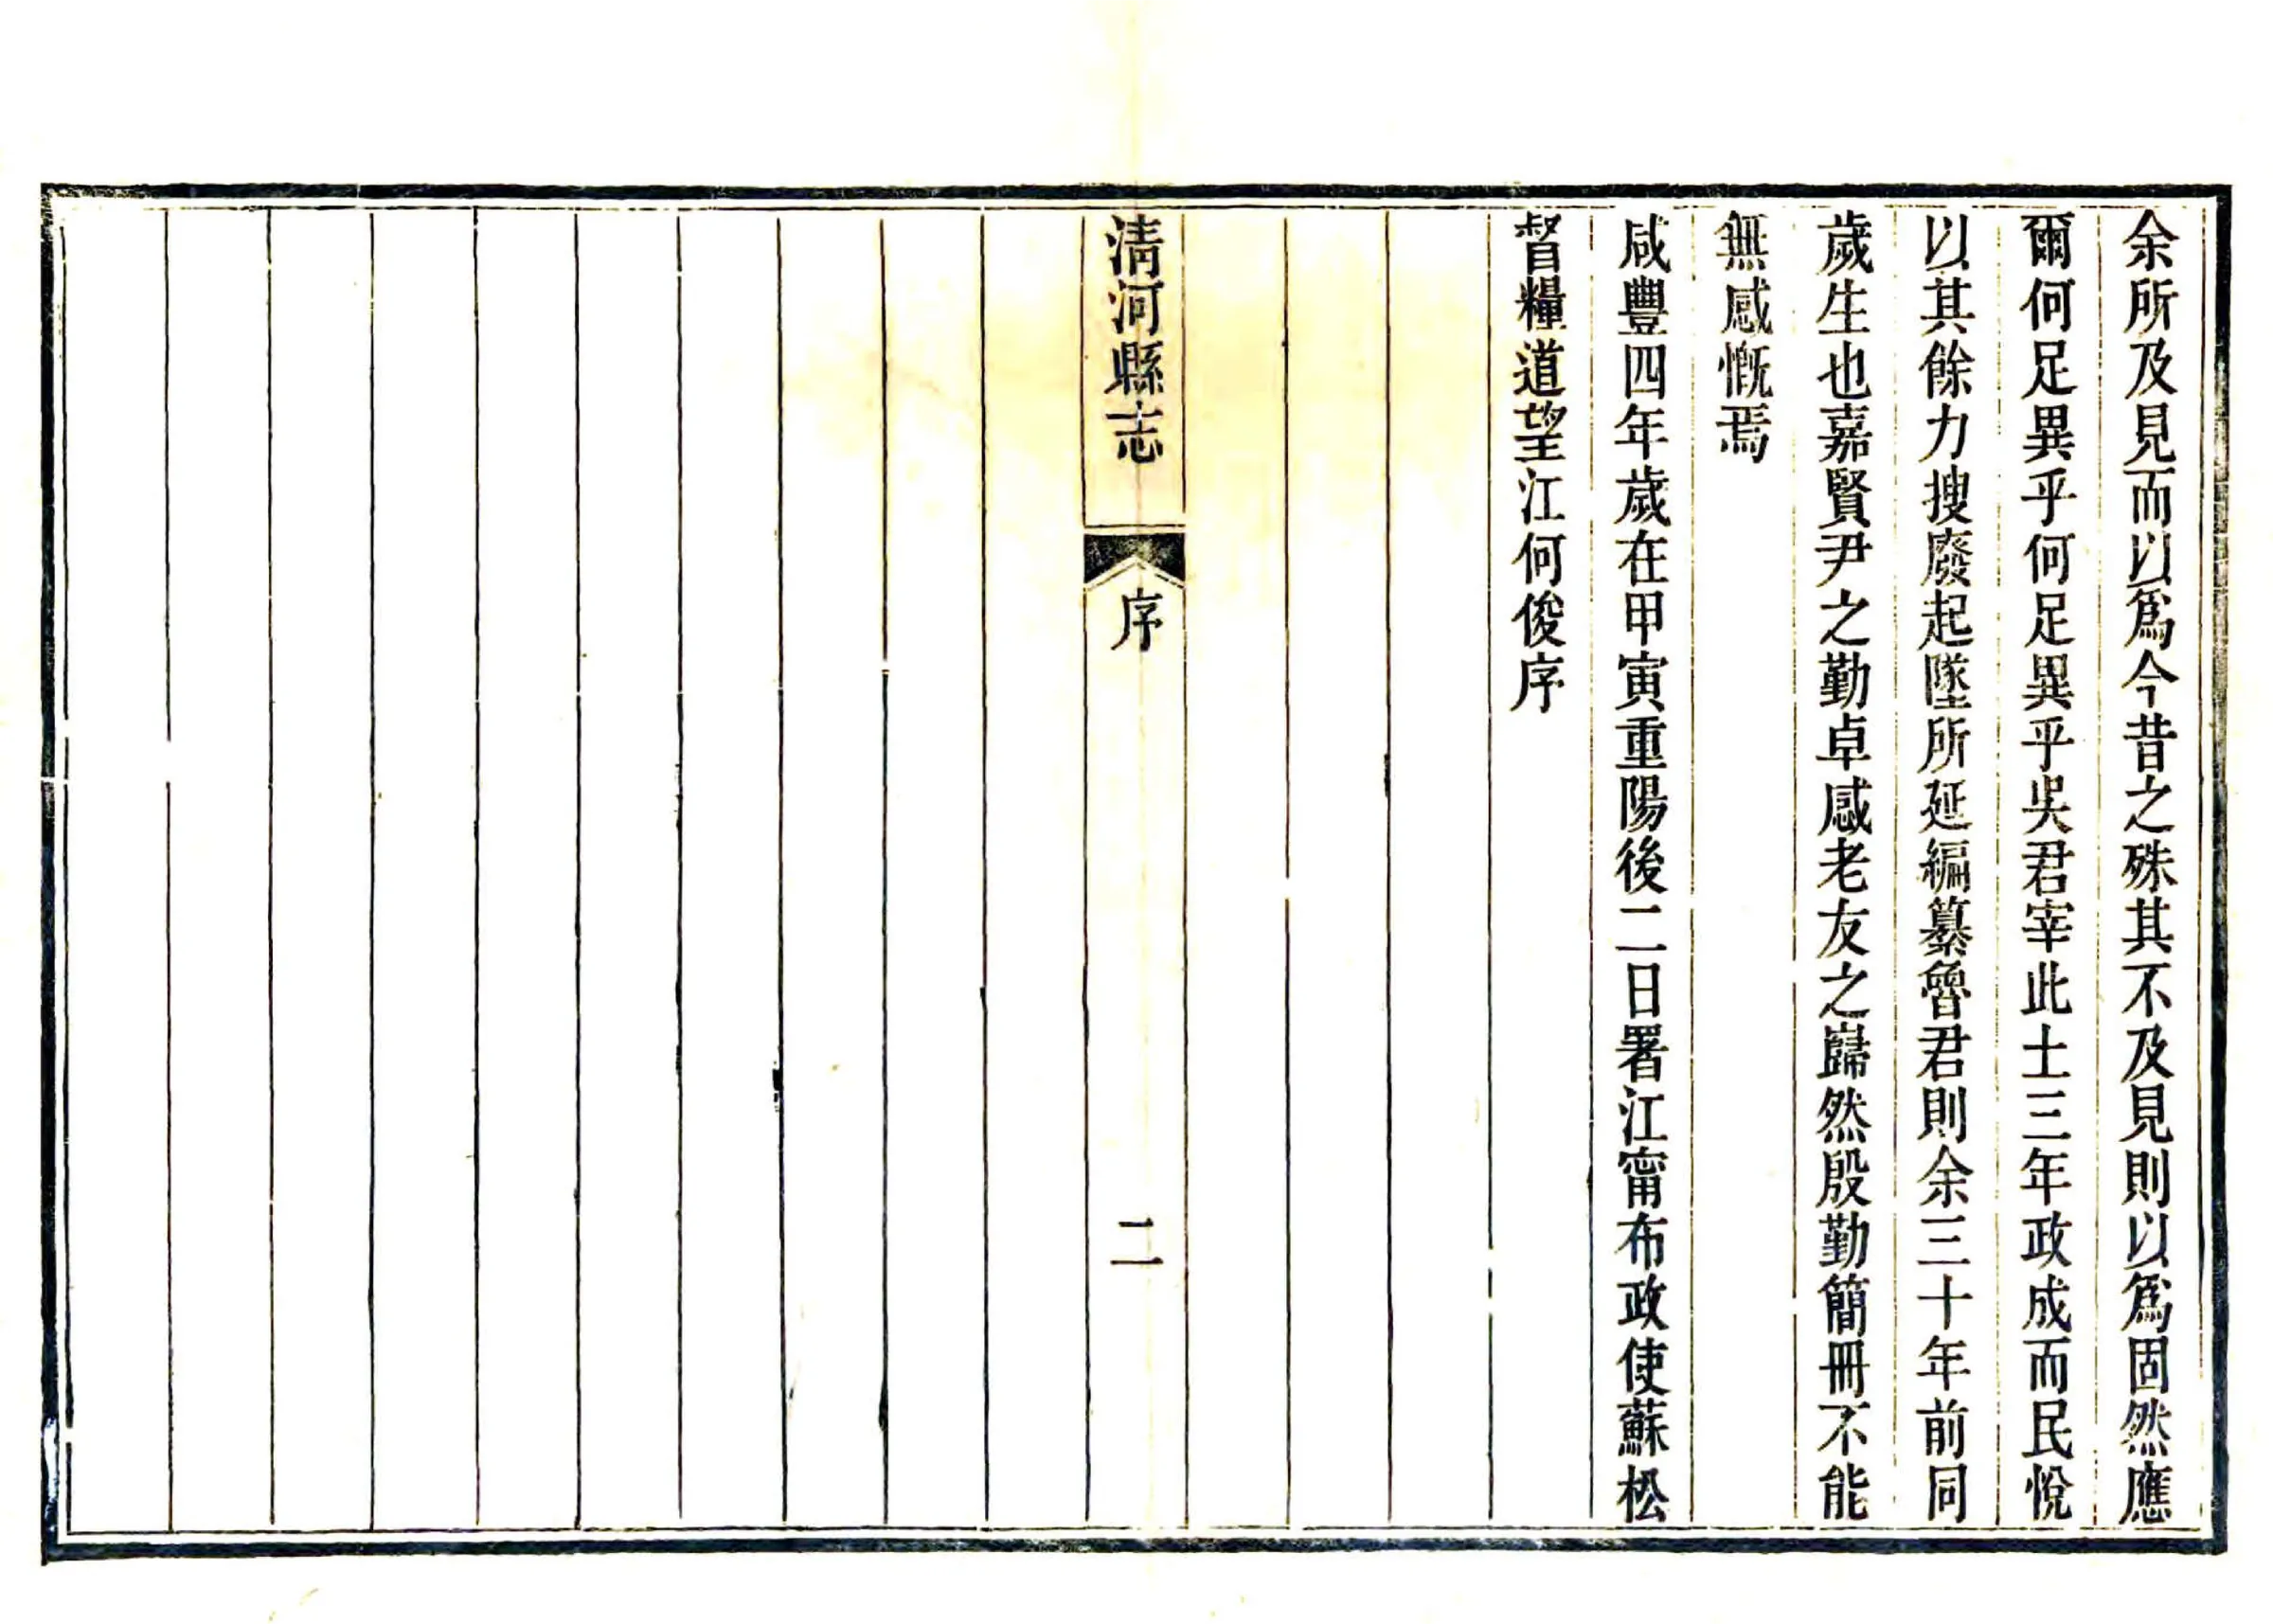 余所及見而以爲今昔之殊其不及見則以爲固然應
爾何足異乎何足異乎吳君宰此土三年政成而民悅
以其餘力搜廢起墜所延編纂魯君則余三十年前同
歲生也嘉賢尹之勤卓感老友之巋然殷勤簡冊不能
無感慨焉
咸豐四年歲在甲寅重陽後二日署江甯布政使蘇松
督糧道望江何俊序
清河縣志
序
二